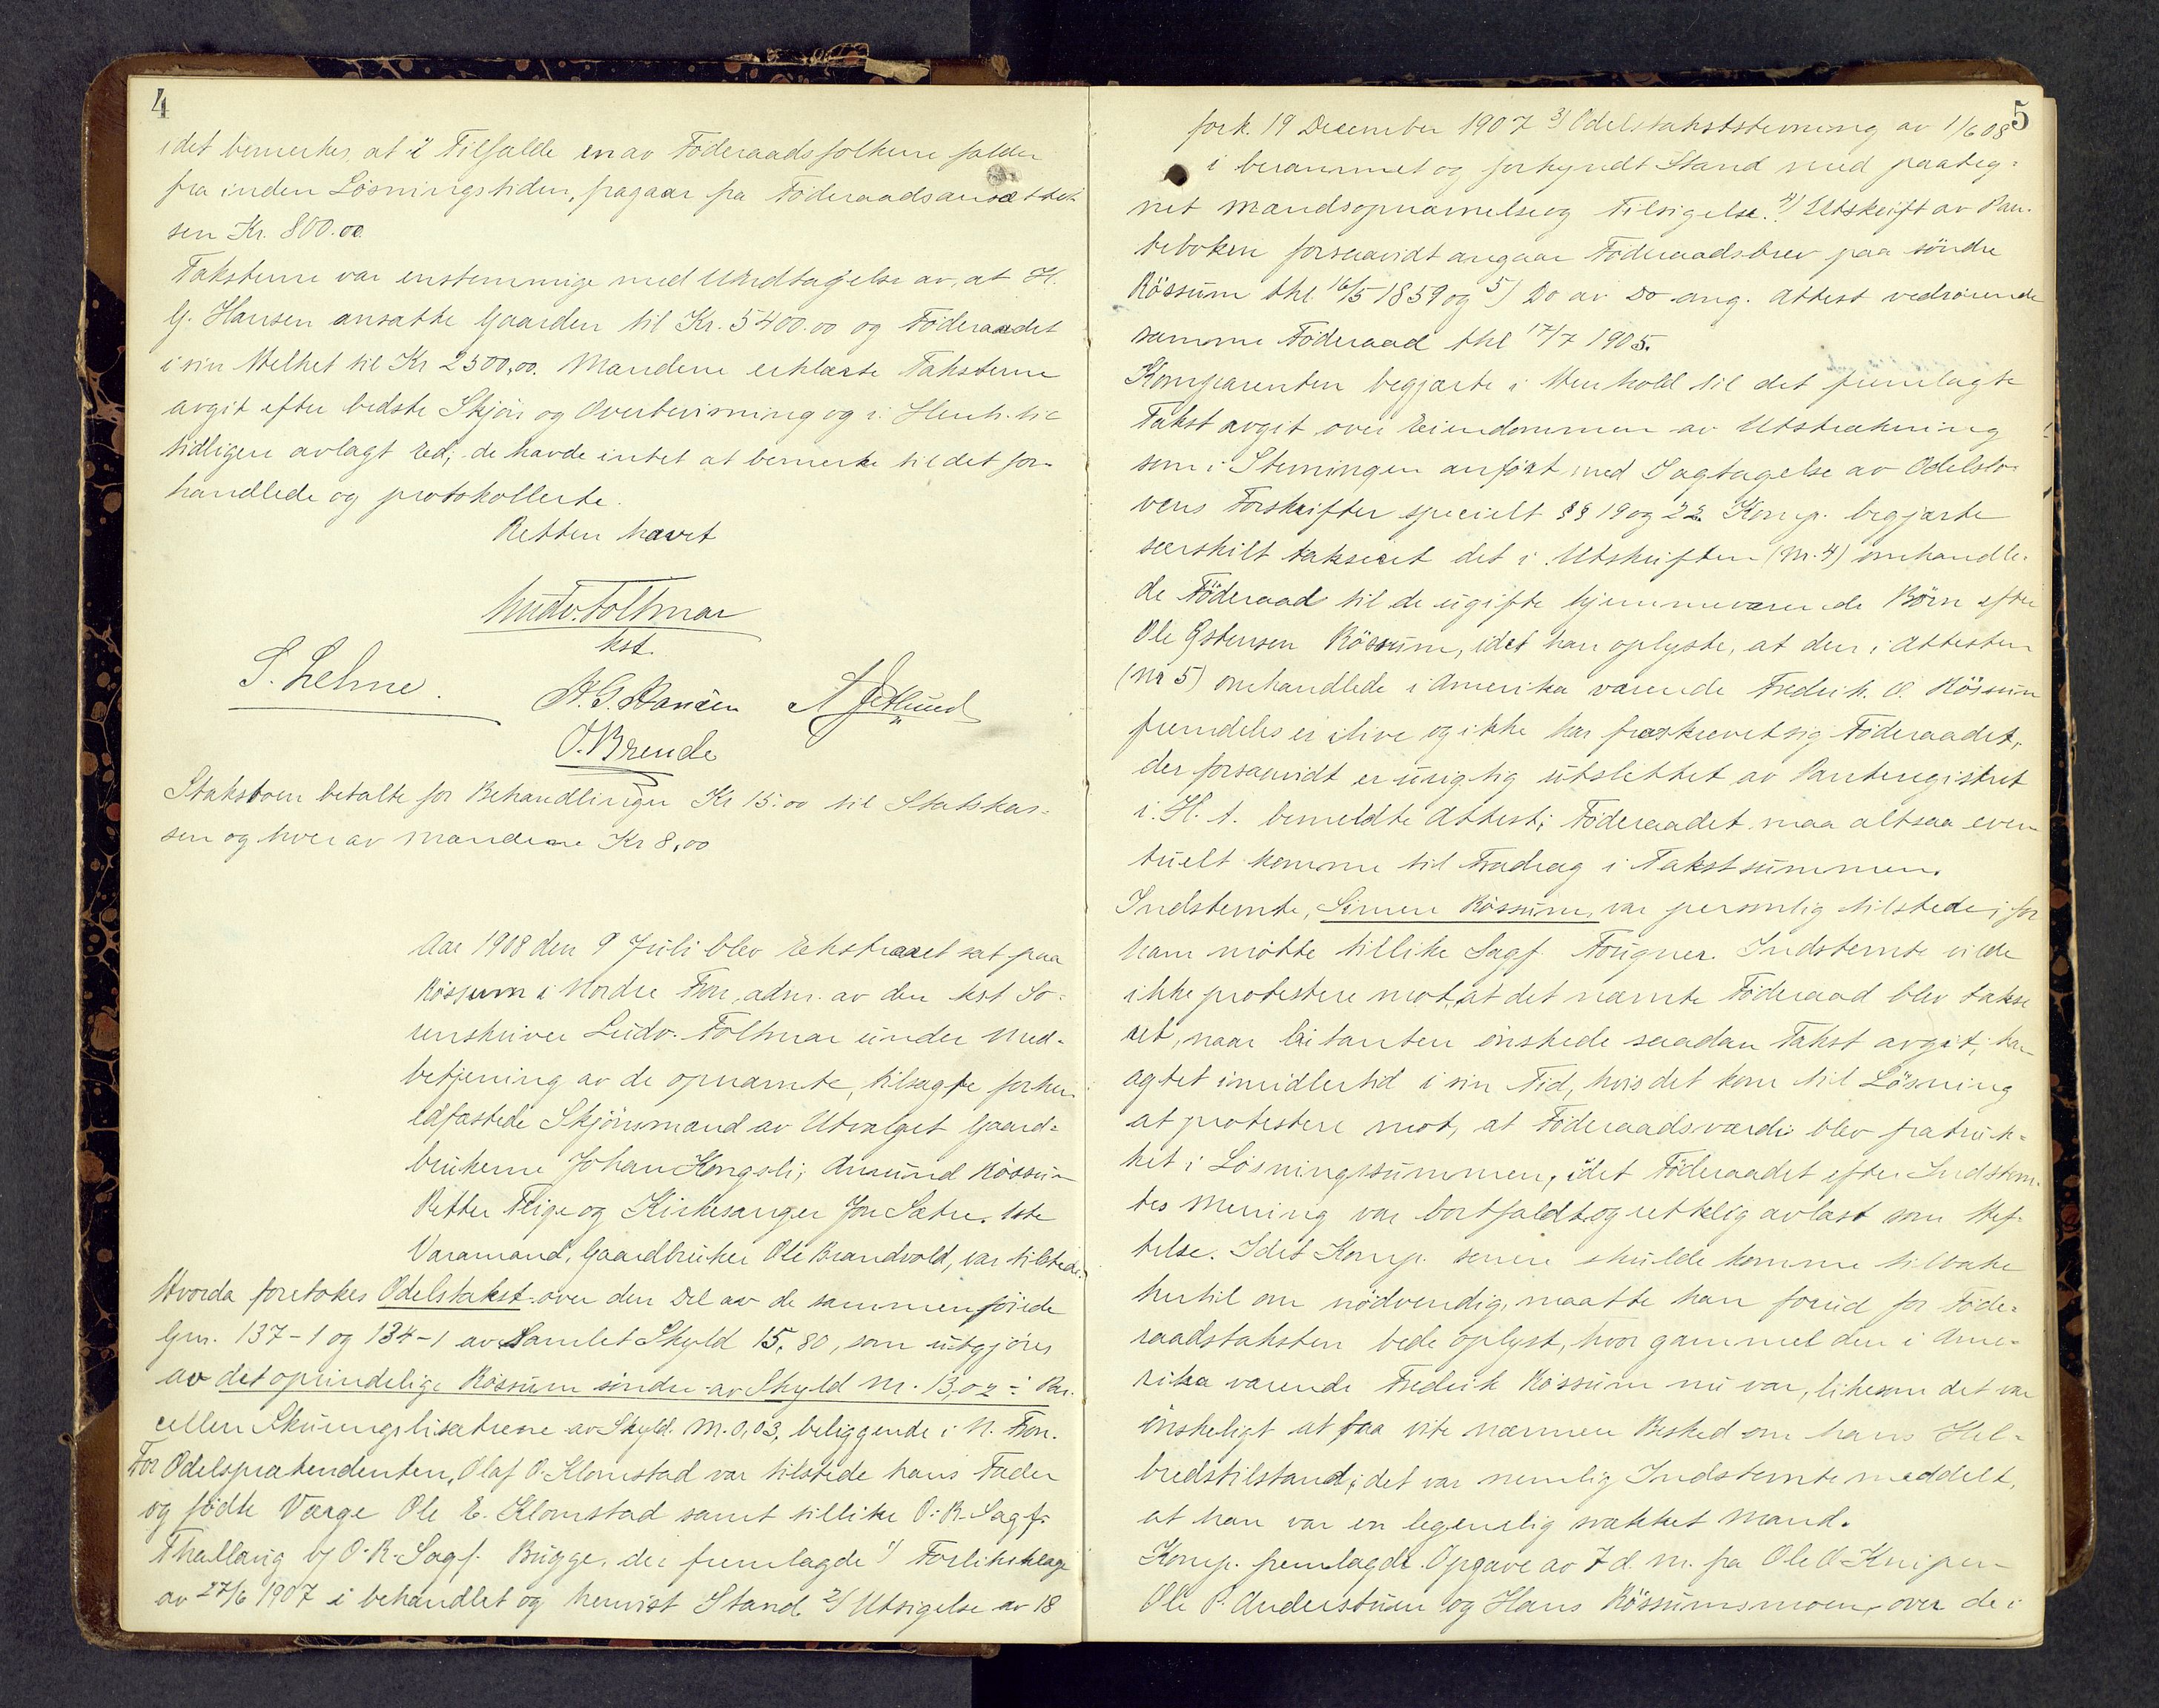 4
idet bemerkes, at i Tilfælde en av Föderaadsfolkene falder
fra inden Lösningstiden, fragaar fra Föderaadsansættel-
sen Kr. 800.00
Taksterne var enstemmige med Undtagelse av, at H.
G. Hansen ansatte Gaarden til Kr. 5400.00 og Föderaadet
i sin Helhet til Kr 2500,00. Mændene erklærte Taksterne
avgit efter bedste Skjön og Overbevisning og i Henh. til
tidligere avlagt Ed; de havde intet at bemerke til det for-
handlede og protokollerte.
Retten hævet
Ludv. Foltmar
kst.
S. Lehne. H. G. Hansen
O. Brende
betalte for Behandlingen Kr 15.00 til Statskas-
sen og hver av Mændene Kr 8,00
Aar 1908 den 9 Juli blev Ekstraret sat paa
Rössum i Nordre Fron, adm. av den kst So-
renskriver Ludv. Foltmar under Med-
betjening av de opnævnte, tilsagte forhen
edfæstede Skjönsmænd av Utvalget Gaard-
brukerne Johan Kongsli, Amund Rössum
Petter Flige og Kirkesanger Jon Sætre. 1ste
Varamand, Gaardbruker Ole Brandvold, var tilstede.
Hvorda foretokes Odelstakst over den Del av de sammenföiede
Grn. 137-1 og 134-1 av samlet Skyld 15,80, som utgjöres
av det oprindelige Rössum söndre av Skyld M. 13,02 ÷ Par-
cellen Skuungslisætrene av Skyld. M. 0,03, beliggende i N. Fron.
For Odelsprætendenten, Olaf O. Klomstad var tilstede hans Fader
og födte Værge Ole E. Klomstad samt tillike O. R. Sagf.
Thallaug v/ O. R. Sagf. Bugge, der fremlagde 1) Forliksklage
av 27/6 1907 i behandlet og henvist Stand 2) Utsigelse av 18
5
fork. 19 December 1907 3) Odelstakststevning av 1/6 08
i berammet og forkyndt Stand med paateg-
net Mandsopnævnelse og Tilsigelse. 4) Utskrift av Pan-
teboken forsaavidt angaar Föderaadsbrev paa söndre
Rössum thl 16/5 1859 og 5) Do av Do ang. Attest vedrörende
samme Föderaad thl 17/7 1905.
Komparenten begjærte i Henhold til det fremlagte
Takst avgit over Eiendommen av Utstrækning
som i Stevningen anfört med Iagtagelse av Odelslo-
vens Forskrifter specielt §§ 19 og 22. Komp. begjærte
særskilt takseret det i Utskriften (Nr. 4) omhandle-
de Föderaad til de ugifte hjemmeværende Börn efter
Ole Östensen Rössum, idet han oplyste, at den i Attesten
(Nr 5) omhandlede i Amerika værende Fredrik O. Rössum
fremdeles er ilive og ikke har fraskrevet sig Föderaadet,
der forsaavidt er urigtig utslettet av Panteregistret
i H. t. bemeldte Attest; Föderaadet maa altsaa even
tuelt komme til Fradrag i Takstsummen.
Indstevnte, Simen Rössum, var personlig tilstede; for
ham mötte tillike Sagf. Fougner. Indstevnte vilde
ikke protestere mot, at det nævnte Föderaad blev takse
ret, naar Citanten önskede saadan Takst avgit; han
agtet imidlertid i sin Tid, hvis det kom til Lösning
at protestere mot, at Föderaadsværdi blev fratruk-
ket i Lösningssummen, idet Föderaadet efter Indstevn-
tes Mening var bortfaldt og rettelig avlæst som Hef-
telse. Idet Komp. senere skulde komme tilbake
hertil om nödvendig, maatte han forud for Föde-
raadstaksten bede oplyst, hvor gammel den i Ame-
rika værende Fredrik Rössum nu var, likesom det var
önskeligt at faa vite nærmere Besked om hans Hel-
bredstilstand; det var nemlig Indstevnte meddelt,
at han var en legemlig svækket Mand.
Komp. fremlagde Opgave av 7 d. M. fra Ole O. Knipen
Ole P. Anderstuen og Hans Rössumsmoen, over de i